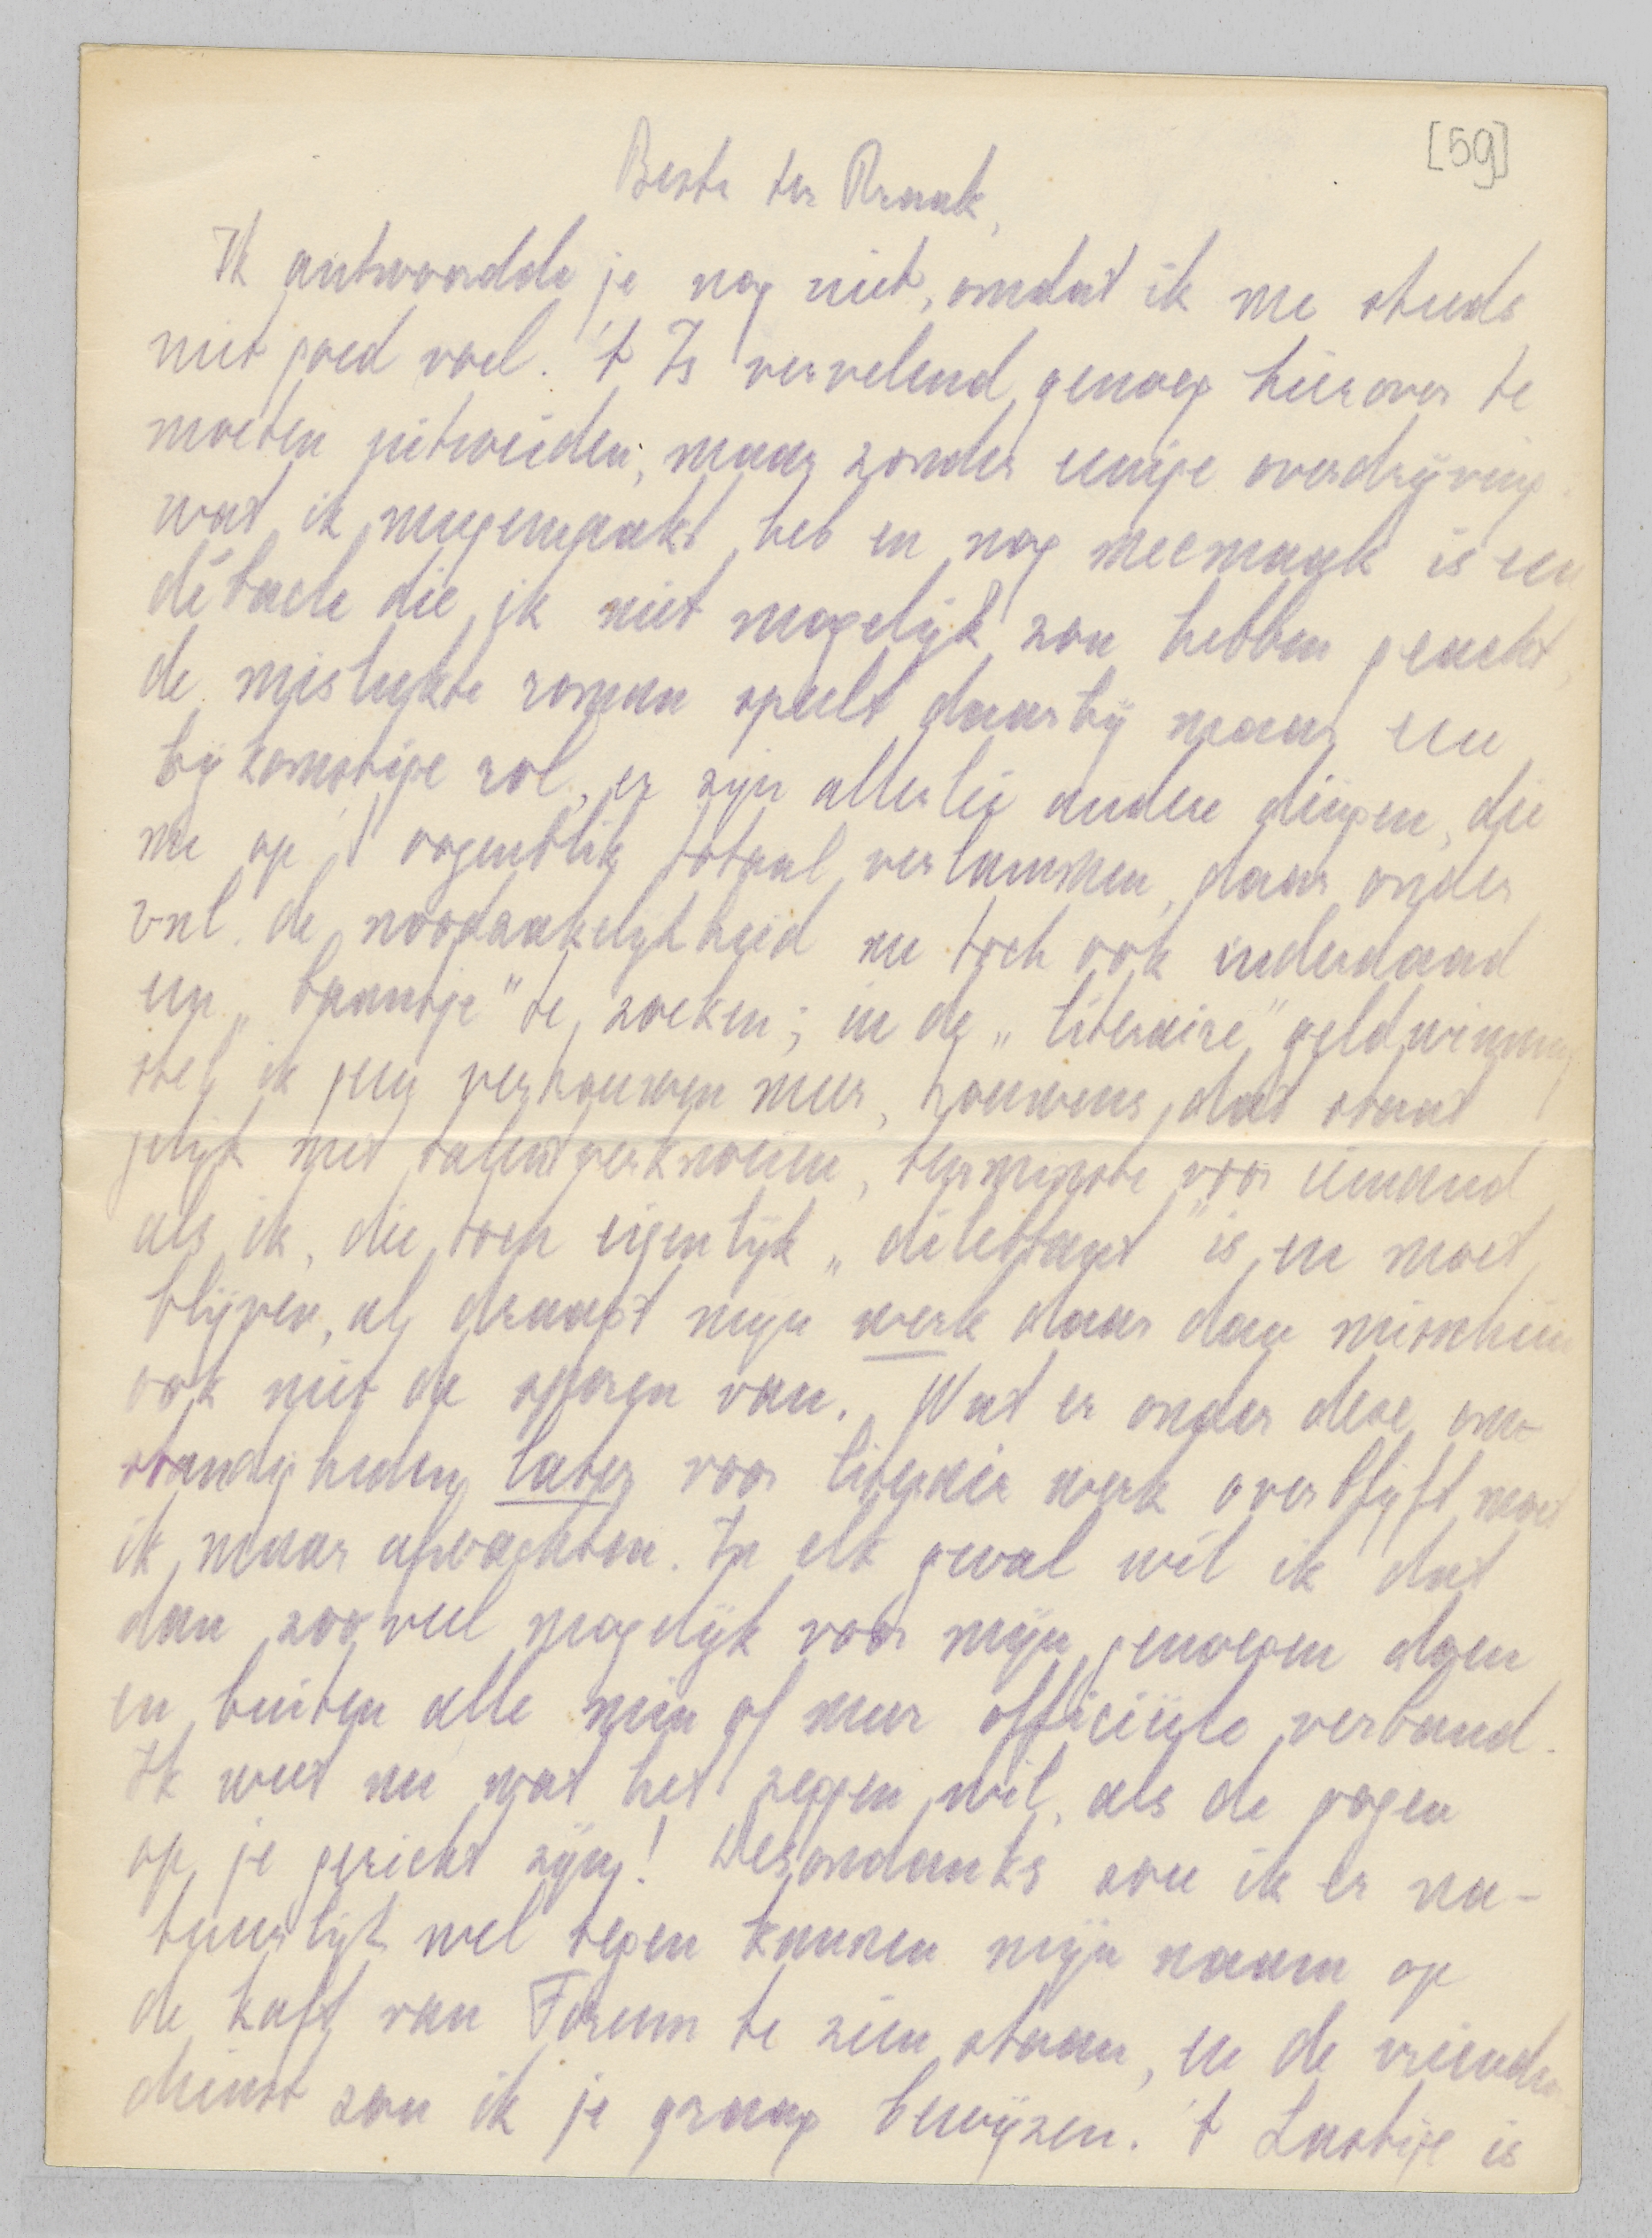 [59]
Beste ter Braak,
Ik antwoordde je nog niet, omdat ik me steeds
niet goed voel. 't Is vervelend genoeg hierover te
moeten uitweiden, maar zonder eenige overdrijving:
wat ik meegemaakt heb en nog meemaak is een
débacle die ik niet mogelijk zou hebben geacht,
de mislukte roman speelt daarbij maar een
bijkomstige rol, er zijn allerlei andere dingen, die
me op 't oogenblik totaal verlammen, daar onder
vnl. de noodzakelijkheid nu toch ook inderdaad
een „baantje" te zoeken; in de „literaire" geldwinning
stel ik geen vertrouwen meer, trouwens, dat staat
gelijk met talentverknoeien, tenminste voor iemand
als ik, die toch eigenlijk „dilettant" is en moet
blijven, al draagt mijn werk daar dan misschien
ook niet de sporen van. Wat er onder deze om-
standigheden later voor literair werk overblijft moet
ik maar afwachten. In elk geval wil ik dat
dan zooveel mogelijk voor mijn genoegen doen
en buiten alle min of meer officiëele verband.
Ik weet nu wat het zeggen wil, als de oogen
op je gericht zijn! Desondanks zou ik er na-
tuurlijk wel tegen kunnen mijn naam op
de kaft van Forum te zien staan, en de vrienden
dienst zou ik je graag bewijzen. 't Lastige is